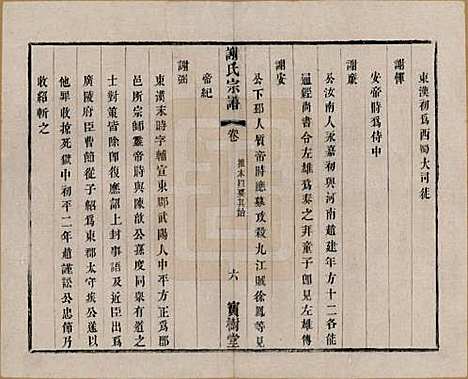 東漢初爲西蜀大司徒
謝惲
安帝時爲侍中
謝廉
公汝南人永嘉初與河南趙建年方十二各能
通經尚書令左雄爲奏之拜童子郎見左雄傳
謝安
公下邳人質帝時應募攻殺九江賊徐鳳等見
帝紀
謝氏宗譜
卷
推本曰要其始
六
寶樹堂
謝弼
東漢末時字輔宣東郡武陽人中平方正爲郡
邑所宗師靈帝時與陳敦公孫度同東有道之
對策皆除郎復應詔上封事語及近臣出爲
廣陵府臣曹節從子紹爲東郡太守挨公遂以
他罪收掠死獄中初平二年趙謹訟公忠節乃
收紹斬之